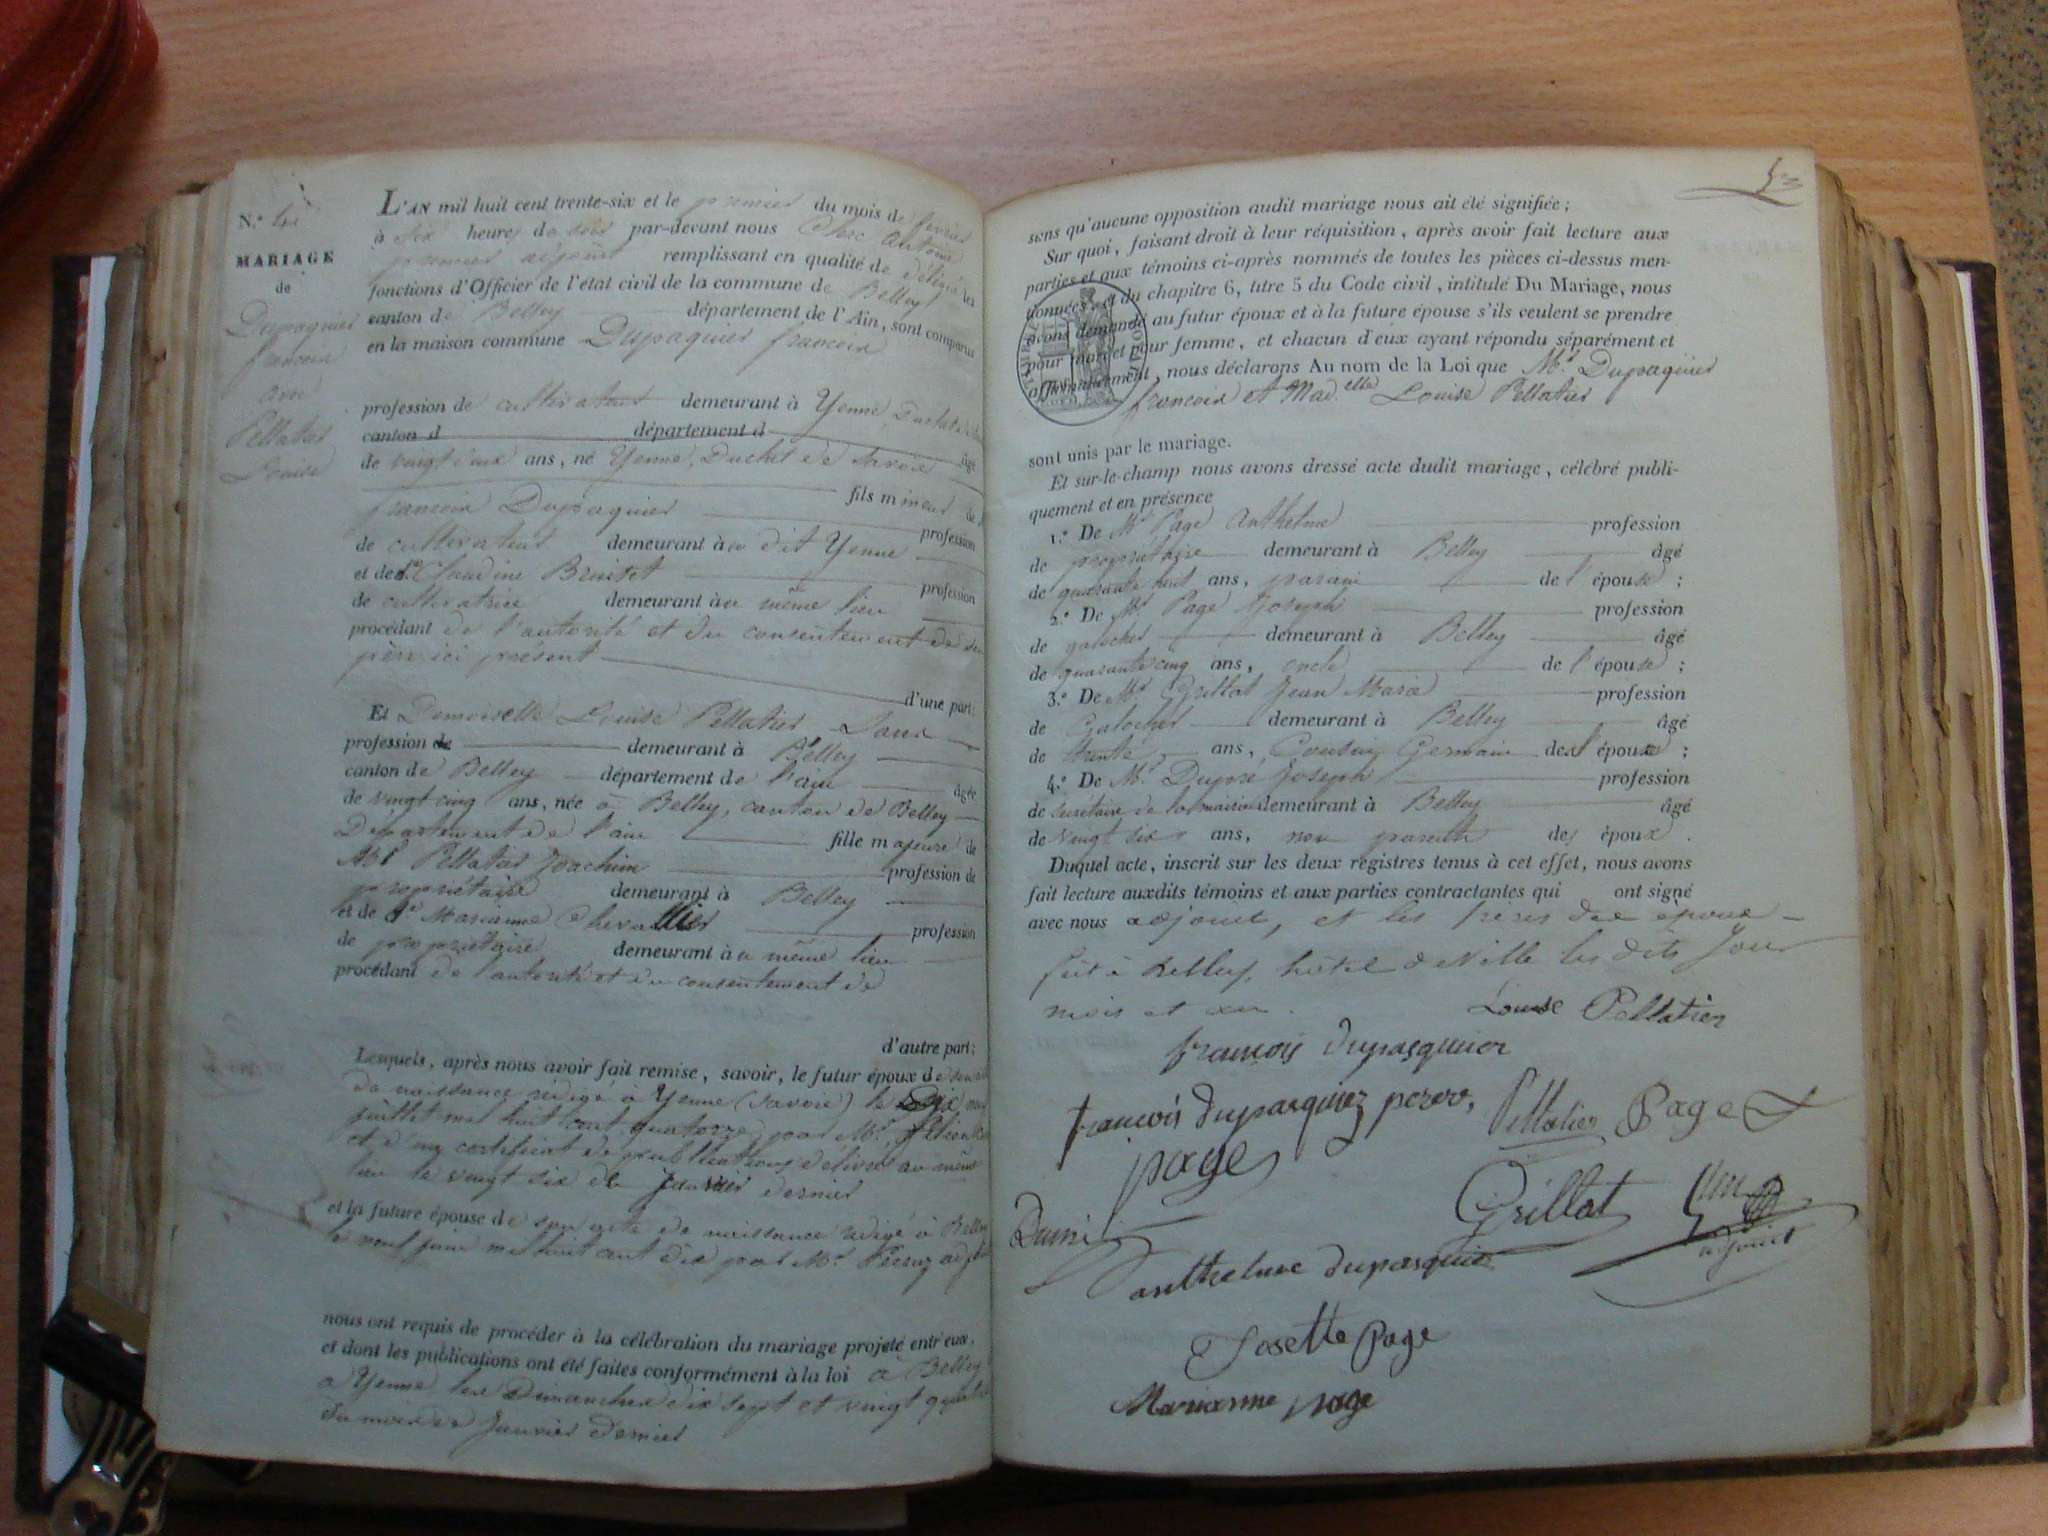 N.º 4
MARIAGE
de
Dupaquier
francois
avec
Pellatier
Louise
L'AN mil huit cent trente-six et le premier du mois de fevrier
à six heures de soir par-devant nous Clerc Antoine
premier adjoint remplissant en qualité de délégué les
fonctions d'Officier de l'état civil de la commune de Belley
canton de Belley département de l'Ain, sont comparus
en la maison commune Dupaquier francois
profession de cultivateur demeurant à Yenne, Duché de
canton d département d
âgé
de vingt deux ans, né Yenne, Duché de Savoie
fils mineur de
francois Dupaquier
profession
de cultivateur demeurant au dit Yenne
et de d.e Claudine
profession
de cultivatrice demeurant au même lieu
procédant de l'autorité et du consentement de son
père ici présent
d'une part;
Et Demoiselle Louise Pellatier Sans
profession de demeurant à Belley
canton de Belley département de l'ain
âgée
de vingt cinq ans, née à Belley, canton de Belley
Département de l'ain fille majeure de
Mr Pellatier Joachim profession de
propriétaire demeurant à Belley
et de d.e Marianne Chevallier profession
de propriétaire demeurant au même lieu
procédant de l'autorité et du consentement de
d'autre part;
Lesquels, après nous avoir fait remise, savoir, le futur époux de son
de naissance rédigé à Yenne (Savoie) le Dix
juillet mil huit cent quatorze par Mr.
et d'un certificat de publications délivré au même
lieu le vingt six de janvier dernier
et la future épouse de son acte de naissance rédigé à Belley
le neuf juin mil huit cent dix par Mr.
nous ont requis de procéder à la célébration du mariage projeté entr'eux,
et dont les publications ont été faites conformément à la loi à Belley
a Yenne les Dimanches dix sept et vingt quatre
du mois de Janvier dernier
53
sens qu'aucune opposition audit mariage nous ait été signifiée;
Sur quoi, faisant droit à leur réquisition, après avoir fait lecture aux
parties et aux témoins ci-après nommés de toutes les pièces ci-dessus men-
tionnées, et du chapitre 6, titre 5 du Code civil, intitulé Du Mariage, nous
avons demandé au futur époux et à la future épouse s'ils veulent se prendre
pour mari et pour femme, et chacun d'eux ayant répondu séparément et
affirmativement, nous déclarons Au nom de la Loi que Mr. Dupaquier
francois et Mad.elle Louise Pellatier
sont unis par le mariage.
Et sur-le-champ nous avons dressé acte dudit mariage, célébré publi-
quement et en présence
1.º De Mr Page Anthelme profession
de propriétaire demeurant à Belley âgé
de quarante huit ans, parain de l'épouse;
2.º De Mr Page Joseph profession
de galocher demeurant à Belley âgé
de quarante cinq ans, oncle de l'épouse;
3.º De Mr Grillat Jean Marie profession
de Galocher demeurant à Belley âgé
de trente ans, Cousin Germain de l'épouse;
4.º De Mr. Dupré Joseph profession
de secrétaire de la mairie demeurant à Belley âgé
de vingt six ans, non parent des époux.
Duquel acte, inscrit sur les deux registres tenus à cet effet, nous avons
fait lecture auxdits témoins et aux parties contractantes qui ont signé
avec nous adjoint, et les pères des époux
fait à Belley, hôtel de Ville les dits Jour
mois et an.
Louise Pellatier
françois dupasquier
francois dupasquiez
Pellatier Page
page
Grillat
adjoint
anthelme dupasquier
Josette Page
Marianne page